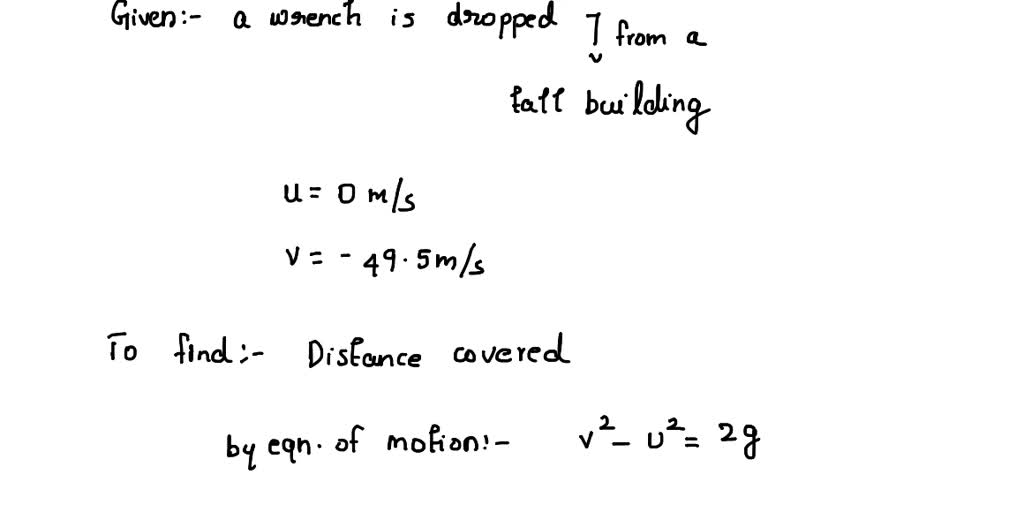 Given:- a wrench is dropped from a
tall building
u = 0 m/s
v = - 49.5 m/s
To find:- Distance covered
by eqn. of motion:- v² - u² = 2g